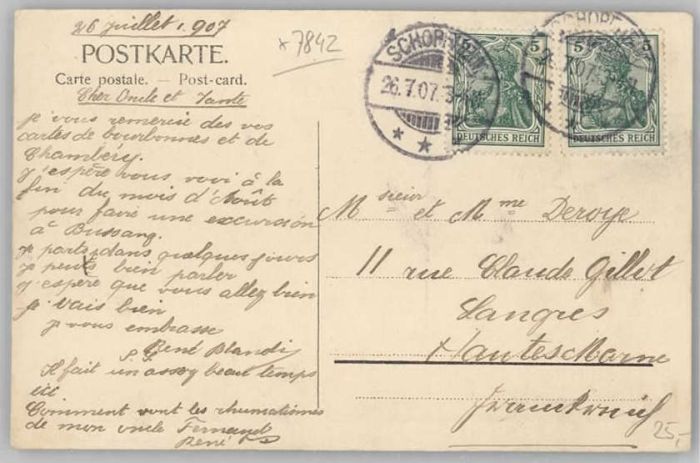 26 juillet 1907
*7842
POSTKARTE.
Carte postale. — Post-card.
Cher Oncle et Tante
je vous remercie des vos
cartes de bourbonnes et de
Chambéry.
j'espère vous voir à la
fin du mois d'Août
pour faire une excursion
à Bussang.
je parts dans quelques jours
je peux bien parler
j'espère que vous allez bien
je vais bien
je vous embrasse
René Blandi
P.S.
Il fait un assez beau temps
ici
Comment vont les rhumatismes
de mon oncle Fernand
René
SCHOPFHEIM
26.7.07.
5 5
DEUTSCHES REICH
SCHOPFHEIM
26.7.07.
5
DEUTSCHES REICH
Msieur et Mme Deroye
11 rue Claude Gillot
Langres
Hautes Marne
Frankreich
25,-